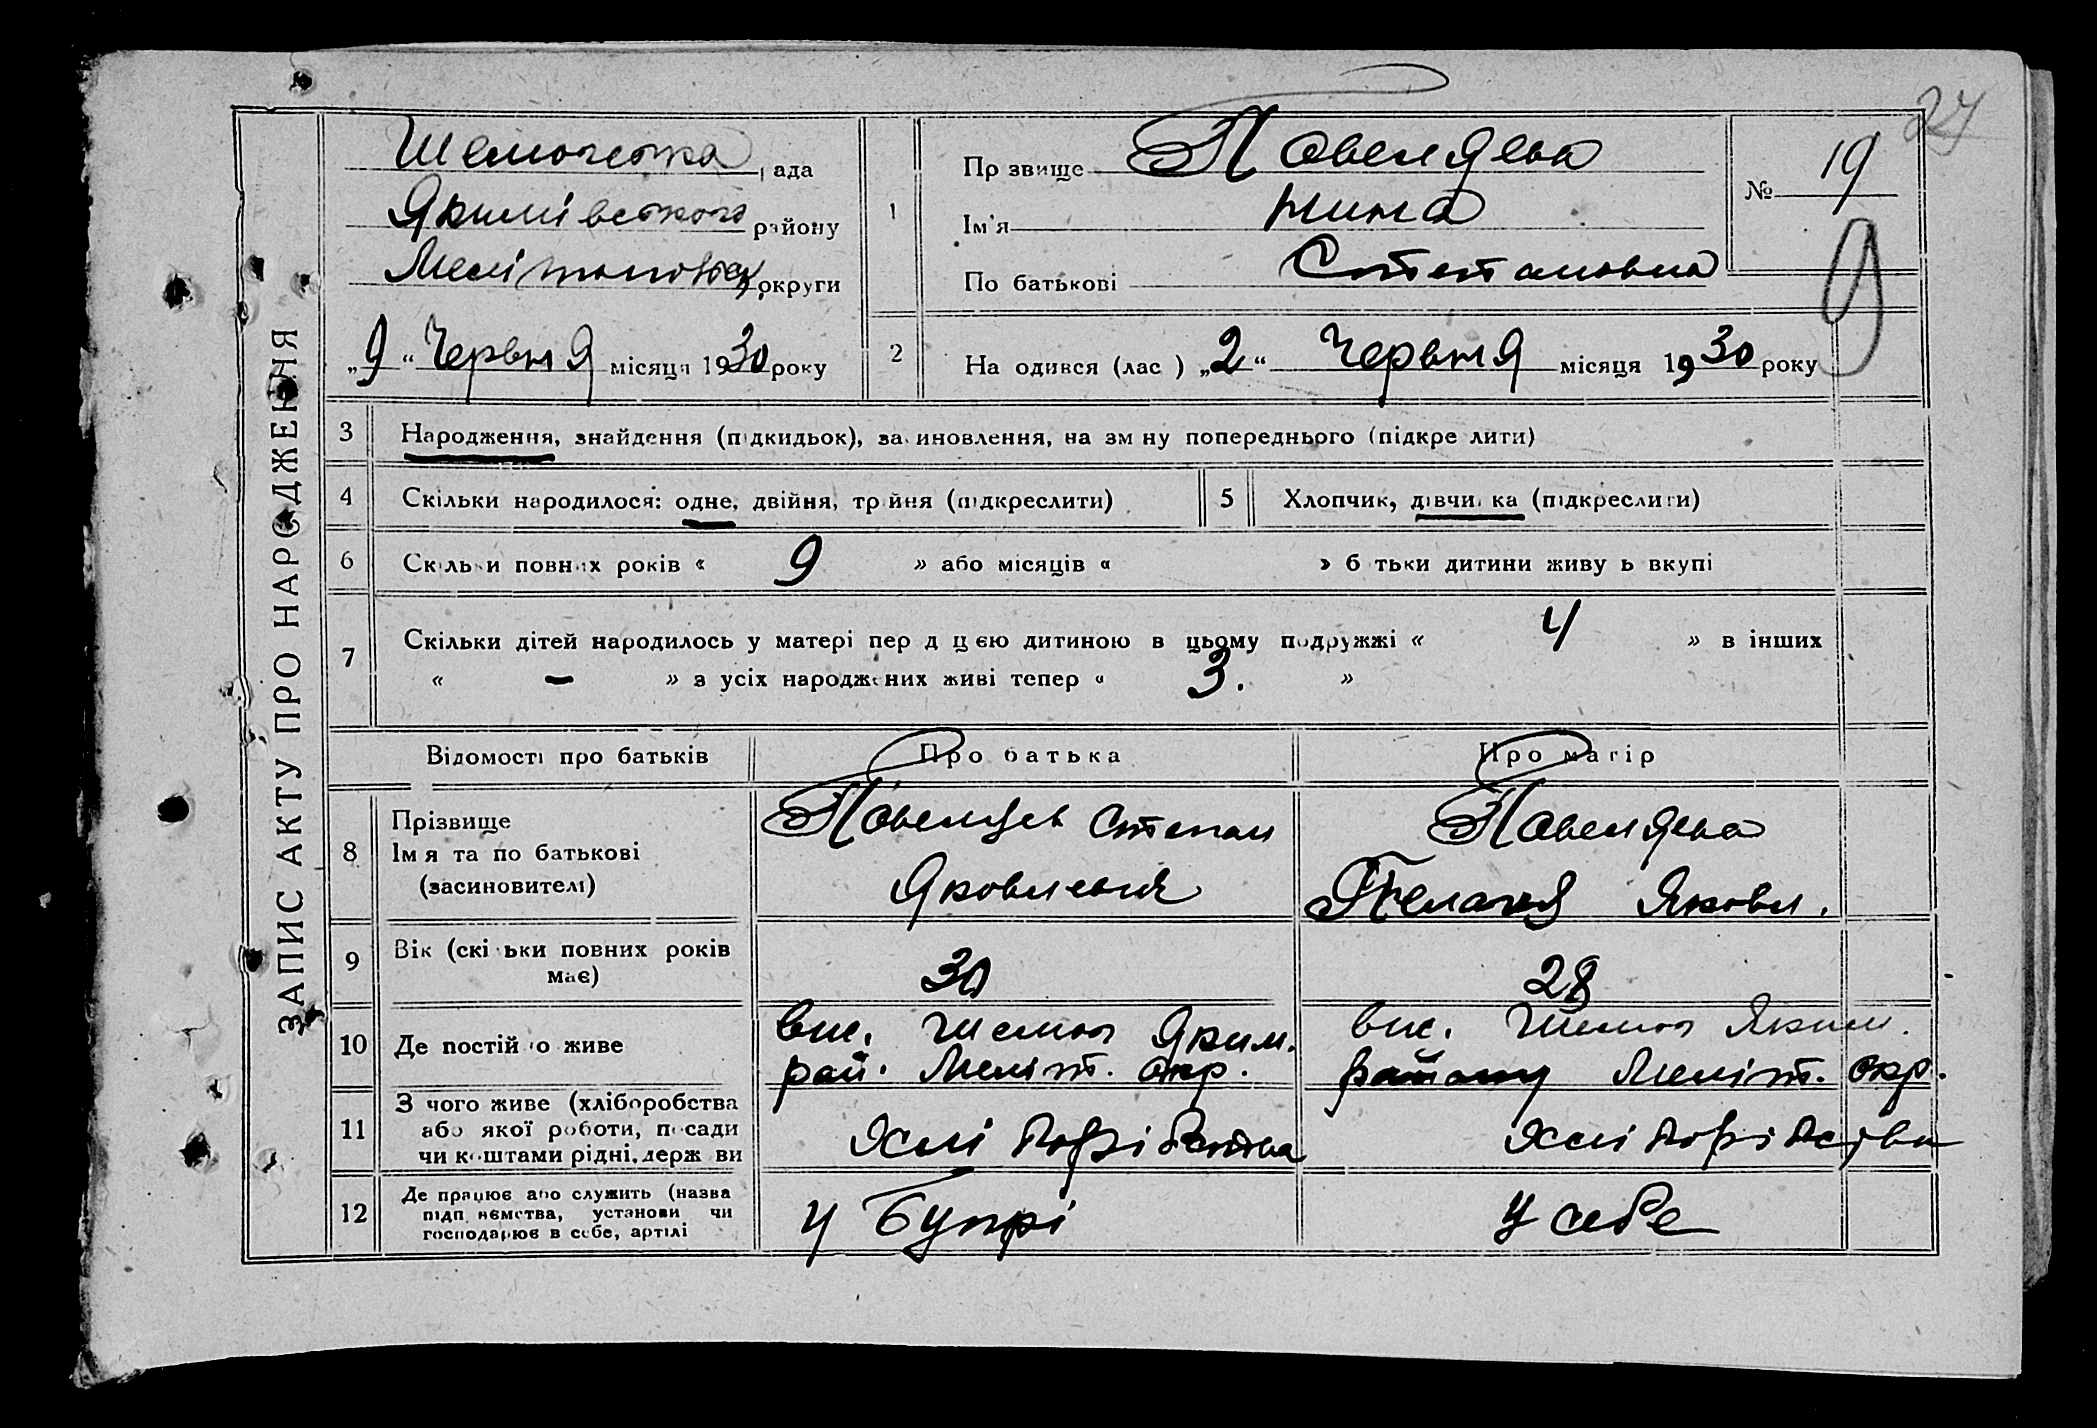 27
ЗАПИС АКТУ ПРО НАРОДЖЕННЯ
рада
Якимівського району
округи
„9“ Червня місяця 1930 року
1
Прізвище
Ім'я Нина
По батькові Степановна
№ 19
9
2
На одився (лас ) „2“ Червня місяця 1930 року
3
Народження, знайдення (підкидьок), за иновлення, на зм ну попереднього (підкре лити)
4
Скільки народилося: одне, двійня, трійня (підкреслити)
5
Хлопчик, дівчи ка (підкреслити)
6
Скільки повних років « 9 » або місяців « » б тьки дитини живу ь вкупі
7
Скільки дітей народилось у матері пер д цією дитиною в цьому подружжі « 4 » в інших
« – » з усіх народжених живі тепер « 3. »
Відомості про батьків
Про батька
Про матір
8
Прізвище
Ім я та по батькові
(засиновителі)
Степан
Яковлевич
Пелагея Яковл.
9
Вік (скі ьки повних років
має)
30
28
10
Де постійно живе
вис. Яким.
рай. Меліт. окр.
вис. Яким.
району Меліт. окр.
11
З чого живе (хліборобства
або якої роботи, посади
чи коштами рідні, держ ви
Хліборобства
Хліборобства
12
Де працює або служить (назва
підп иємства, установи чи
господарює в себе, артілі
у Бупрі
у себе